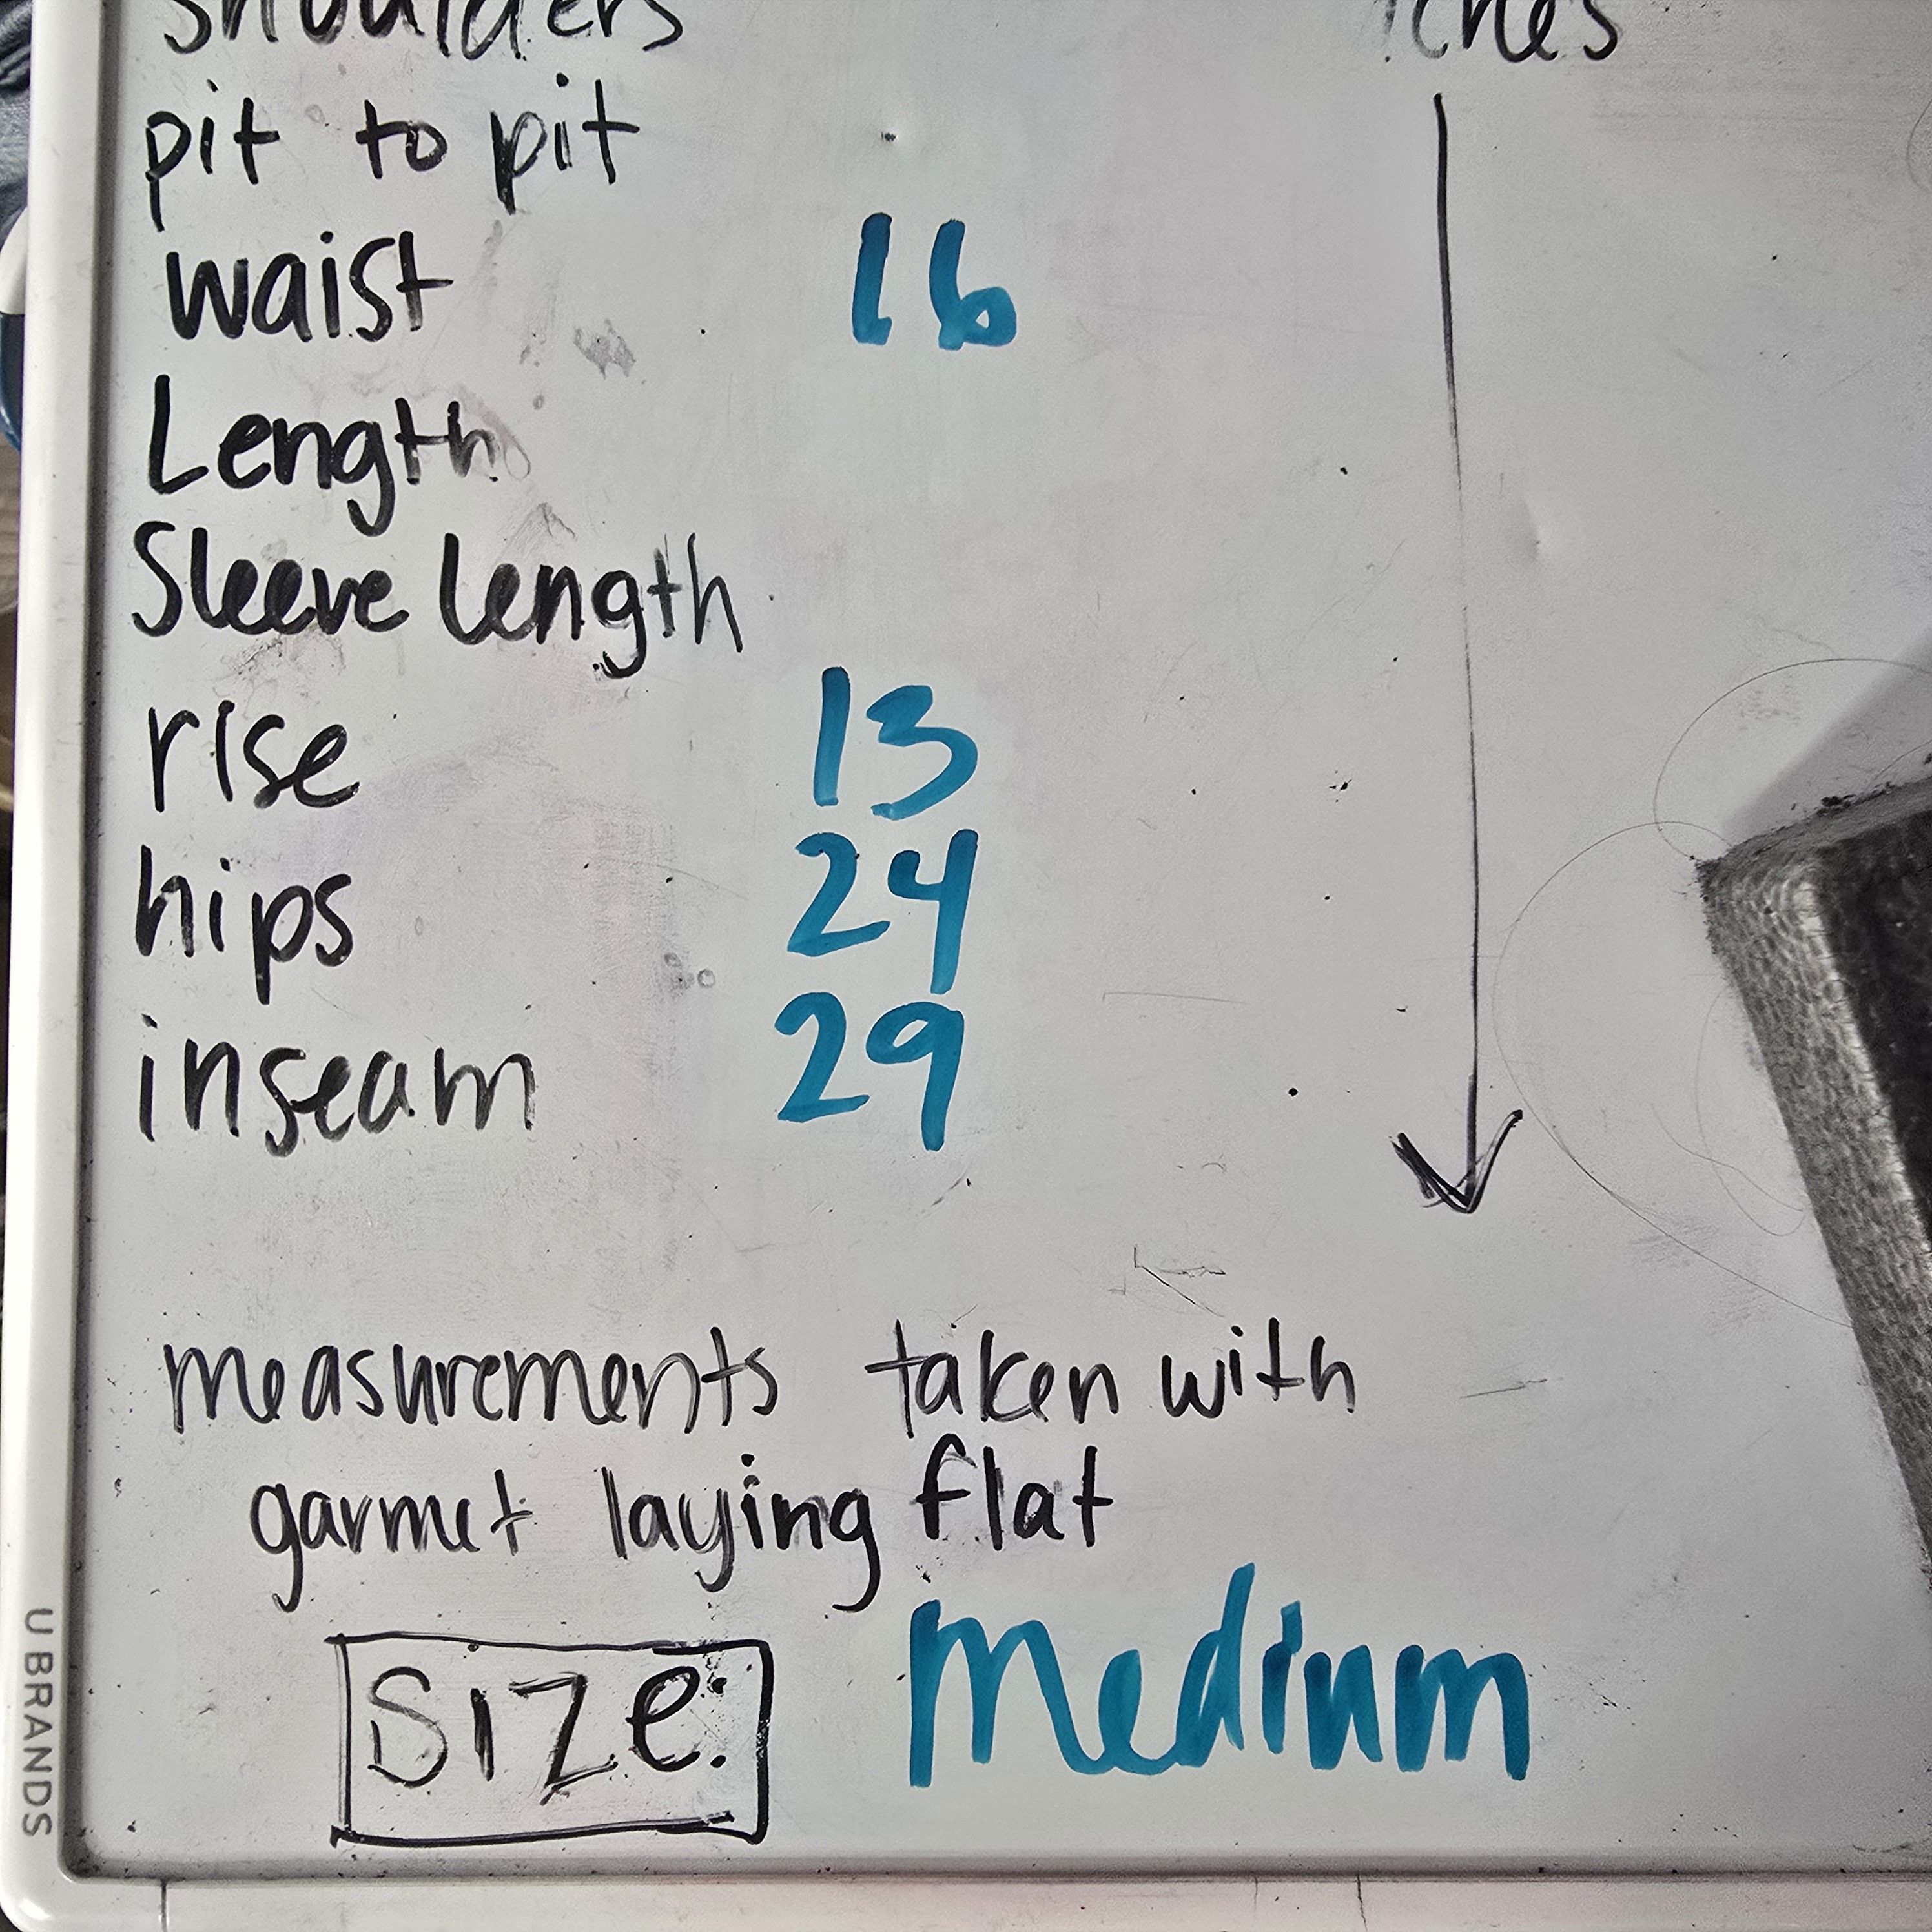 shoulders
pit to pit
waist 16
Length
Sleeve length
rise 13
hips 24
inseam 29
measurements taken with
garmet laying flat
Size: Medium
U BRANDS